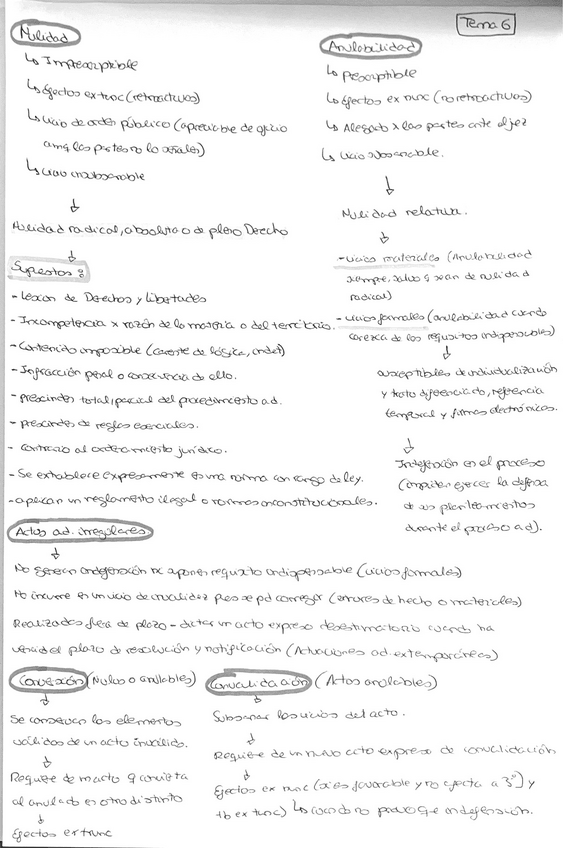 Tema 6
Nulidad
↳ Imprescriptible
↳ Efectos ex tunc (retroactivos)
↳ Vicio de orden público (apreciable de oficio
aunq las partes no lo señalen)
↳ Vicio insubsanable
↓
Nulidad radical, absoluta o de pleno Derecho
↓
Supuestos:
- Lesion de Derechos y libertades
- Incompetencia x razón de la materia o del territorio.
- Contenido imposible (carente de lógica, indet)
- Infracción penal o consecuencia de ello.
- prescinden total/parcial del procedimiento ad.
- prescinden de reglas esenciales.
- contrario al ordenamiento jurídico.
- Se establece expresamente en una norma con rango de ley.
- aplican un reglamento ilegal o normas inconstitucionales.
Anulabilidad
↳ prescriptible
↳ Efectos ex nunc (no retroactivos)
↳ Alegado x las partes ante el juez
↳ Vicio subsanable.
↓
Nulidad relativa.
↓
- vicios materiales (Anulabilidad
siempre, salvo q sean de nulidad
radical)
- vicios formales (anulabilidad cuando
carezca de los requisitos indispensables)
↓
susceptibles de individualización
y trato diferenciado, referencia
temporal y firmas electrónicas.
↓
Indefensión en el proceso
(impiden ejercer la defensa
de sus planteamientos
durante el proceso ad).
Actos ad. irregulares
↓
No generan indefensión ni aponen requisito indispensable (vicios formales)
No incurre en un vicio de invalidez pues se pd corregir (errores de hecho o materiales)
Realizados fuera de plazo - dictar un acto expreso desestimatorio cuando ha
vencido el plazo de resolución y notificación (Actuaciones ad. extemporáneas)
Conversión (Nulos o anulables)
↓
Se conservan los elementos
válidos de un acto inválido.
↓
Requiere de un acto q convierta
al anulado en otro distinto
↓
Efectos ex tunc
Convalidación (Actos anulables)
↓
Subsanar los vicios del acto.
↓
Requiere de un nuevo acto expreso de convalidación
↓
Efectos ex nunc (si es favorable y no afecta a 3º) y
tb ex tunc) ↳ cuando no provoque indefensión.